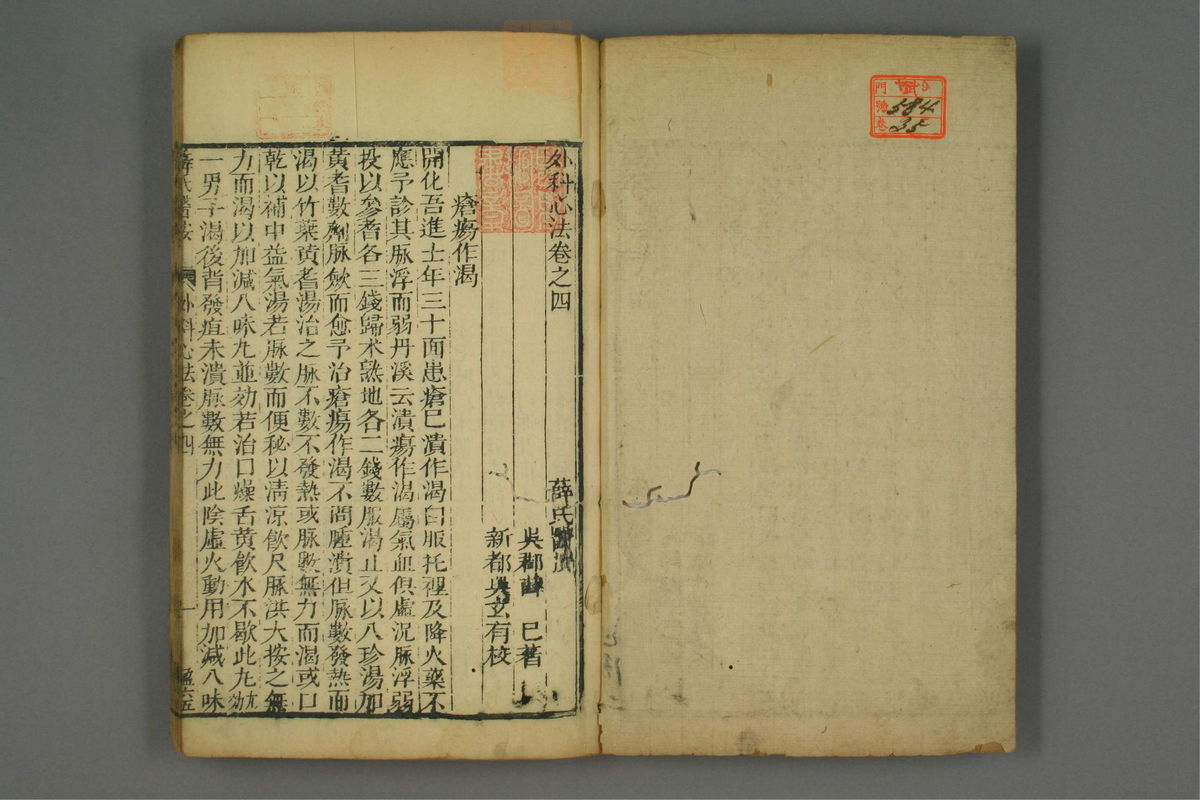 門 號 584
卷 35
外科心法卷之四
薛氏醫
吳郡薛 已著
新都吳玄有校
瘡瘍作渴
開化吾進士年三十面患瘡已潰作渴自服托裡及降火藥不
應予診其脉浮而弱丹溪云潰瘍作渴屬氣血俱虛況脉浮弱
投以參耆各三錢歸朮熟地各二錢數服渴止又以八珍湯加
黃耆數劑脉斂而愈予治瘡瘍作渴不問腫潰但脉數發熱而
渴以竹葉黃耆湯治之脉不數不發熱或脉數無力而渴或口
乾以補中益氣湯若脉數而便秘以清凉飲尺脉洪大按之無
力而渴以加減八味丸並効若治口燥舌黃飲水不歇此丸尤効
一男子渴後背發疽未潰脉數無力此陰虛火動用加減八味
薛氏醫按 外科心法卷之四 一